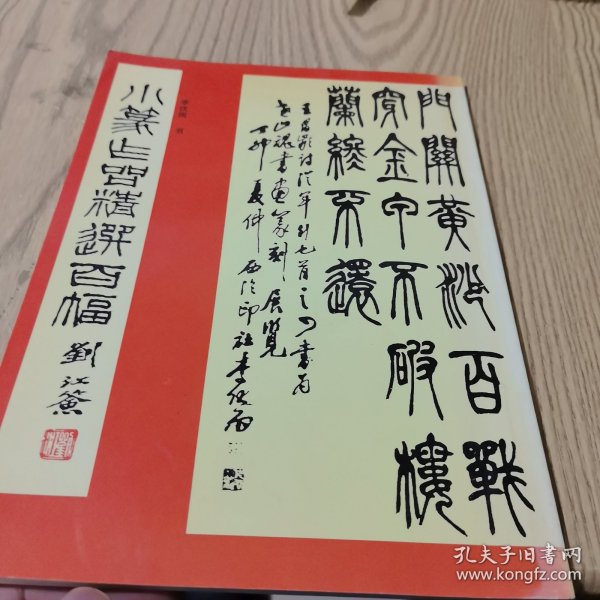 門關黃沙百戰
穿金甲不破樓
蘭終不還
王昌齡詩從軍行七首之四書為
書畫篆刻展覽
夏仲 西泠印社李伏雨
李伏雨 書
小篆 精選百幅
劉江簽
孔夫子旧书网
www.kongfz.com